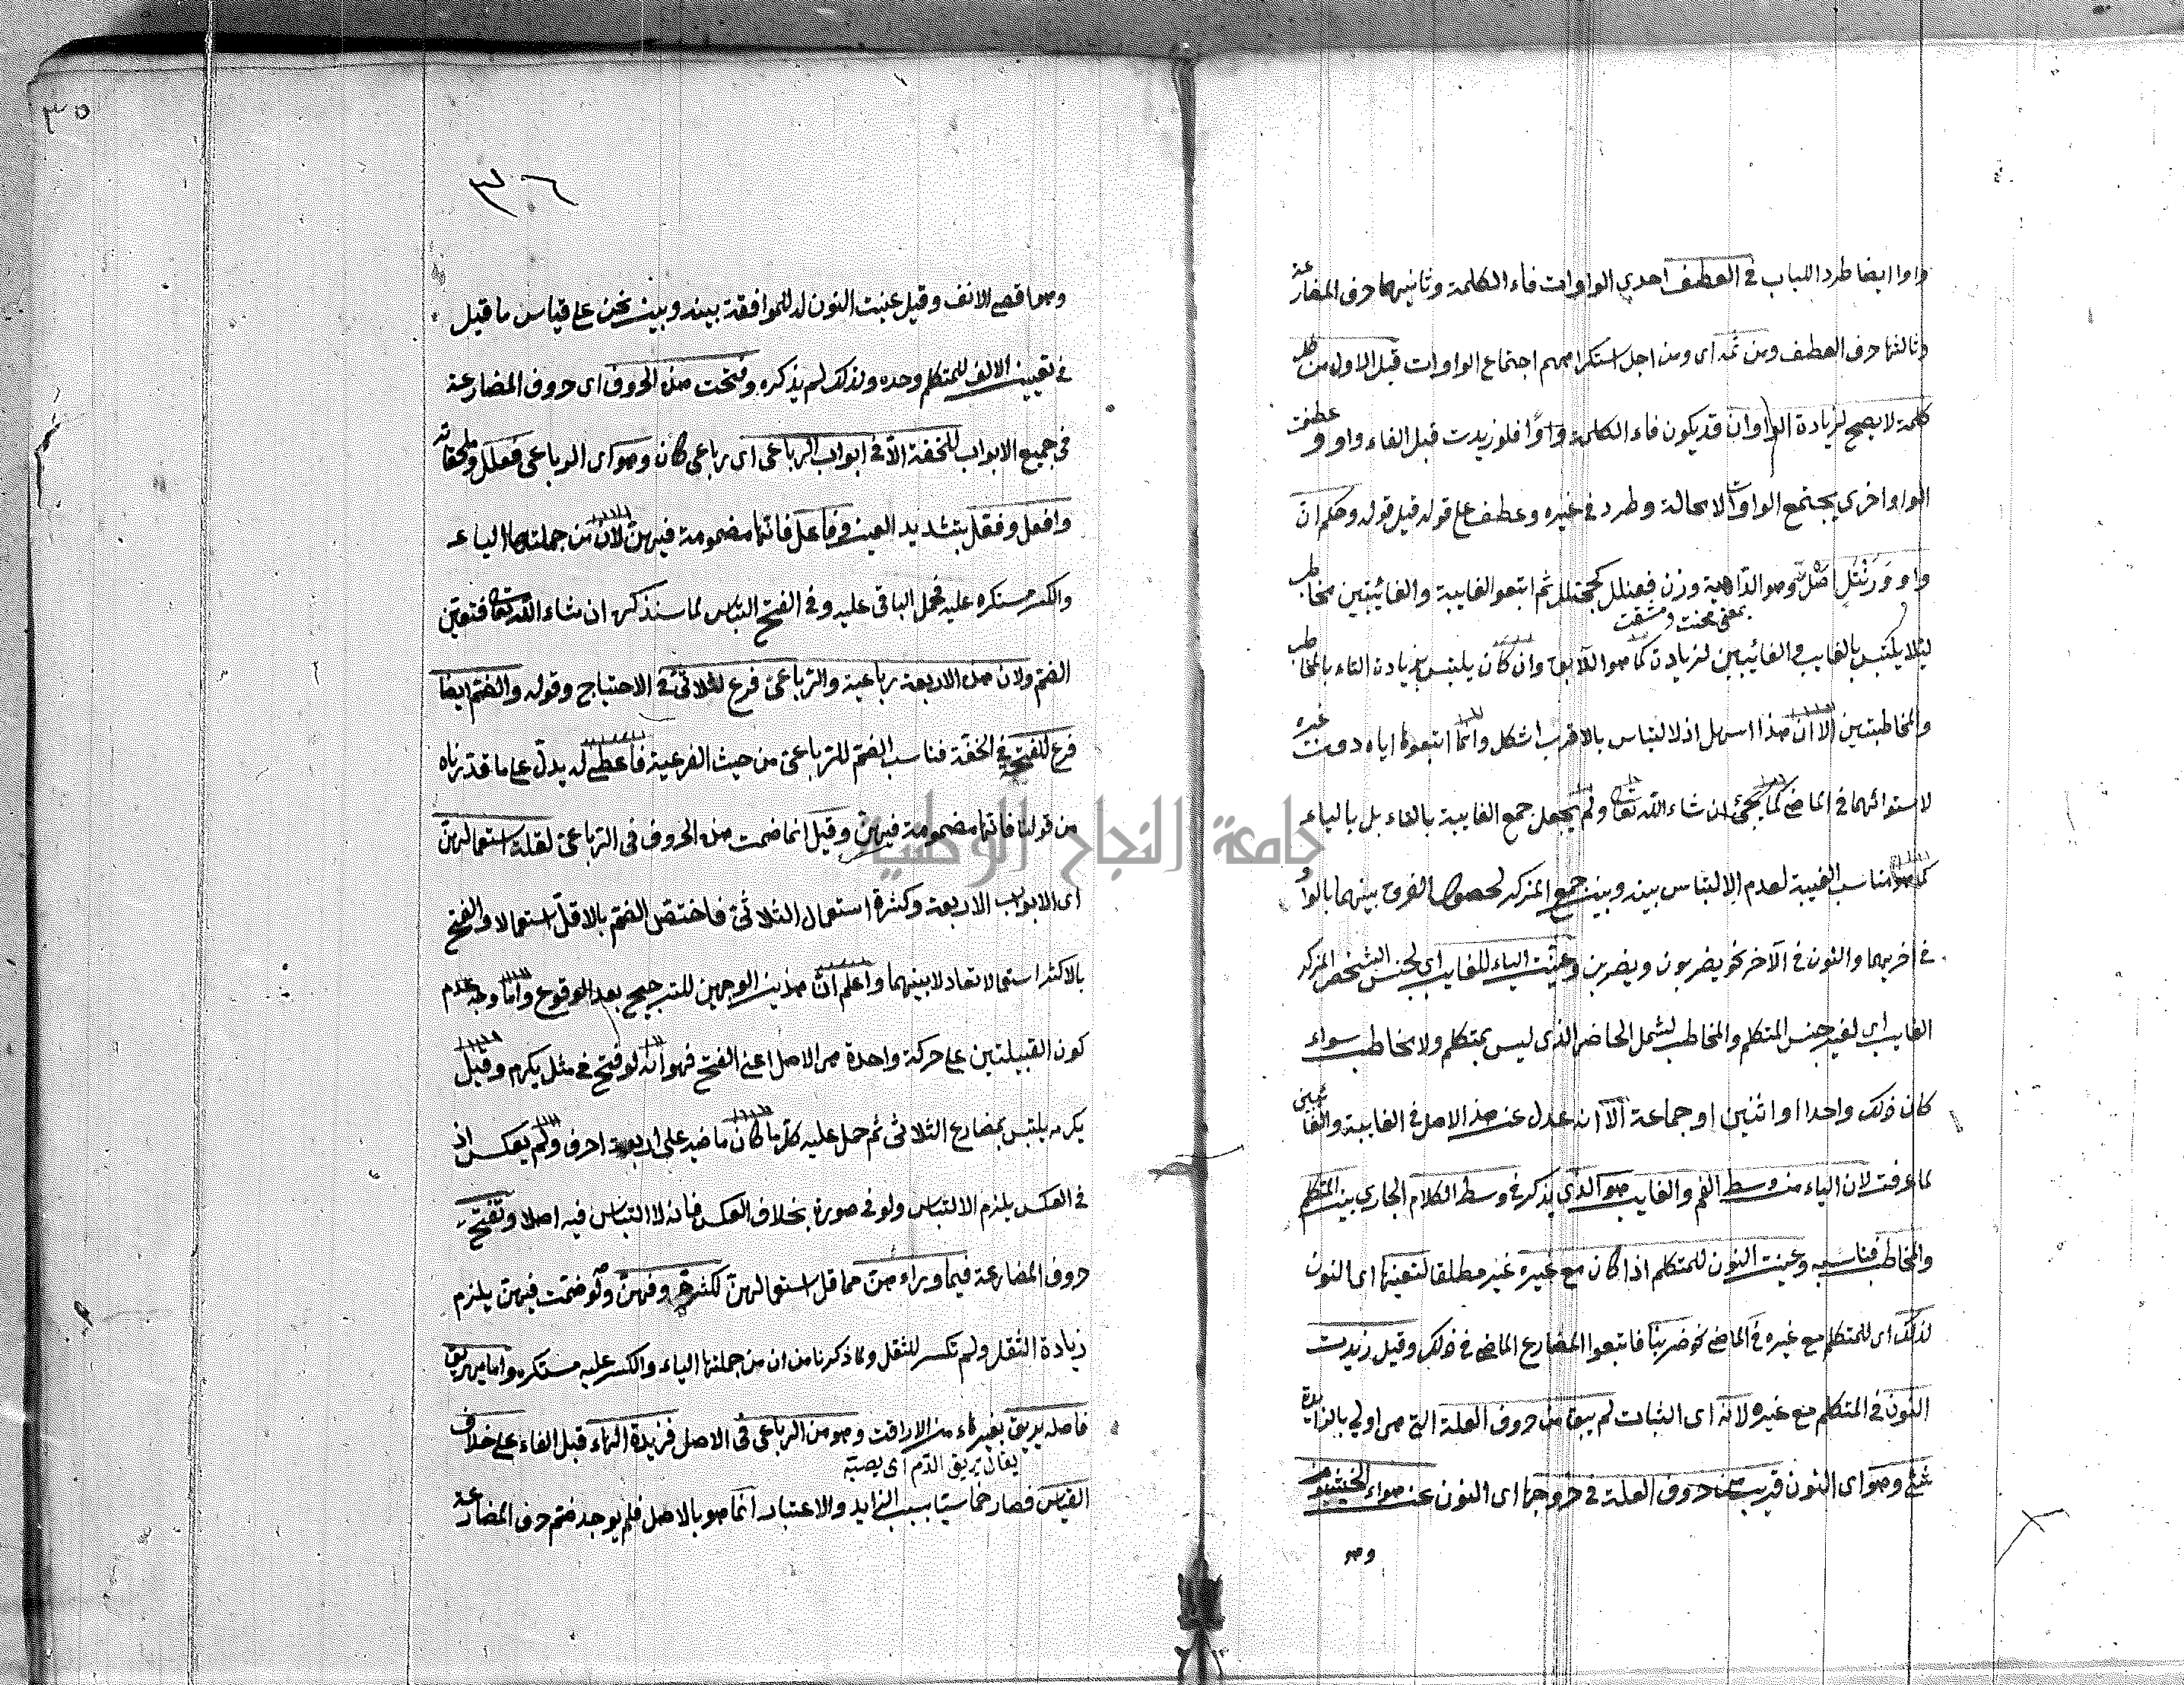 واوا ايضا طردا للباب في العطف احدي الواوات فاء الكلمة وثانيهما حرف المضارعة
وثالثها حرف العطف ومن ثمه اى ومن اجل استكراههم اجتماع الواوات قيل الاول من كل
كلمة لا يصح لزيادة الواو ان قد يكون فاء الكلمة واوًا فلو زيدت قبل الفاء واو وعطفت
الواو اخرى يجتمع الواوات لا محالة وطرد في غيره وعطف على قوله قيل قوله وحكم ان
واو وَرَنْتَل اصل وهو الداهية وزن فعنلل كجحنفل ثم اتبعوا الغايبة والغائبتين مخاطب
بمعنى محنت ومشقت
لئلا يلتبس بالغايب والغائبين لزيادة كما هو اللايق وان كان يلتبس بزيادة التاء بالمخاطب
والمخاطبتين الا ان هذا اسهل اذ الالتباس بالاقرب اشكل وانما اتبعوها اياه دون غيره
لاستوائهما في الماضي كما يجئ ان شاء الله تعا ولم يجعل جمع الغايبة بالتاء بل بالياء
كما هو مناسب الغيبة لعدم الالتباس بينه وبين جمع المذكر لحصول الفرق بينهما بالواو
في اخريهما والنون في الآخر نحو يضربون ويضربن وعينت الياء للغايب اى لجنس الشخص المذكر
الغايب اى لغير جنس المتكلم والمخاطب ليشمل الحاضر الذى ليس بمتكلم ولا مخاطب سواء
كان ذلك واحدا او اثنين او جماعة الا انه عدل عن هذا الاصل في الغايبة والغائبتين
لما عرفت لان الياء من وسط الفم والغايب هو الذى يذكر في وسط الكلام الجاري بين المتكلم
والمخاطب فناسبه وعينت النون للمتكلم اذا كان مع غيره غير مطلقا لتعينها اى النون
لذلك اى للمتكلم مع غيره في الماضي نحو ضربنا فاتبعوا المضارع الماضي في ذلك وقيل زيدت
النون في المتكلم مع غيره لانه اى الثبات لم يبق من حروف العلة التي هى اولي بالزيادة
شئ وهو اى النون قريب من حروف العلة في خروجها اى النون عن هواء الخيشوم
وهو
٣٥
٣٦
وهو اقصى الانف وقيل عينت النون له للموافقة بينه وبين نحن على قياس ما قيل
في تعيين الالف للمتكلم وحده ولذلك لم يذكره وفتحت هذه الحروف اى حروف المضارعة
في جميع الابواب للخفة الا في ابواب الرباعى اى رباعى كان وهو اى الرباعى فعلل وملحقاته
وافعل وفعّل بتشديد العين وفاعل فانها مضمومة فيهن لان من جملتها الياء
والكسر مستكره عليه فحمل الباقى عليه وفي الفتح التباس لما سنذكره ان شاء الله تعا فتعين
الضم ولان هذه الاربعة رباعية والرباعى فرع للثلاثى في الاحتياج وقوله والضم ايضا
فرع للفتح في الخفة فناسب الضم للرباعى من حيث الفرعية فاعطى له يدل على ما قدرناه
من قولنا فانها مضمومة فيهن وقيل انما ضمت هذه الحروف في الرباعى لقلة استعمالهن
اى الابواب الاربعة وكثرة استعمال الثلاثى فاختص الضم بالاقل استعمالا والفتح
بالاكثر استعمالا تعادلا بينهما واعلم ان هذين الوجهين للترجيح بعد الوقوع واما وجه عدم
كون القبيلتين على حركة واحدة هى الاصل اعنى الفتح فهو انه لو فتح في مثل يكرم وقيل
يكرم يلتبس بمضارع الثلاثى ثم حمل عليه كل ما كان ماضيه على اربعة احرف ولم يعكس اذ
في العكس يلزم الالتباس ولو في صورة بخلاف العكس فانه لا التباس فيه اصلا وتفتح
حروف المضارعة فيما وراءهن مما قل استعمالهن لكثرة حروفهن ولو ضمت فيهن يلزم
زيادة الثقل ولم تكسر للثقل ولما ذكرنا من ان من جملتها الياء والكسر عليه مستكره واما يهريق
فاصله يريق بغير هاء من الاراقت وهو من الرباعى في الاصل فزيدة الهاء قبل الفاء على خلاف
يقال يريق الدم اى يصبه
القياس فصار خماسيا بسبب الزايد والاعتبار انما هو بالاصل فلم يوجد ضم حرف المضارعة
جامعة النجاح الوطنية